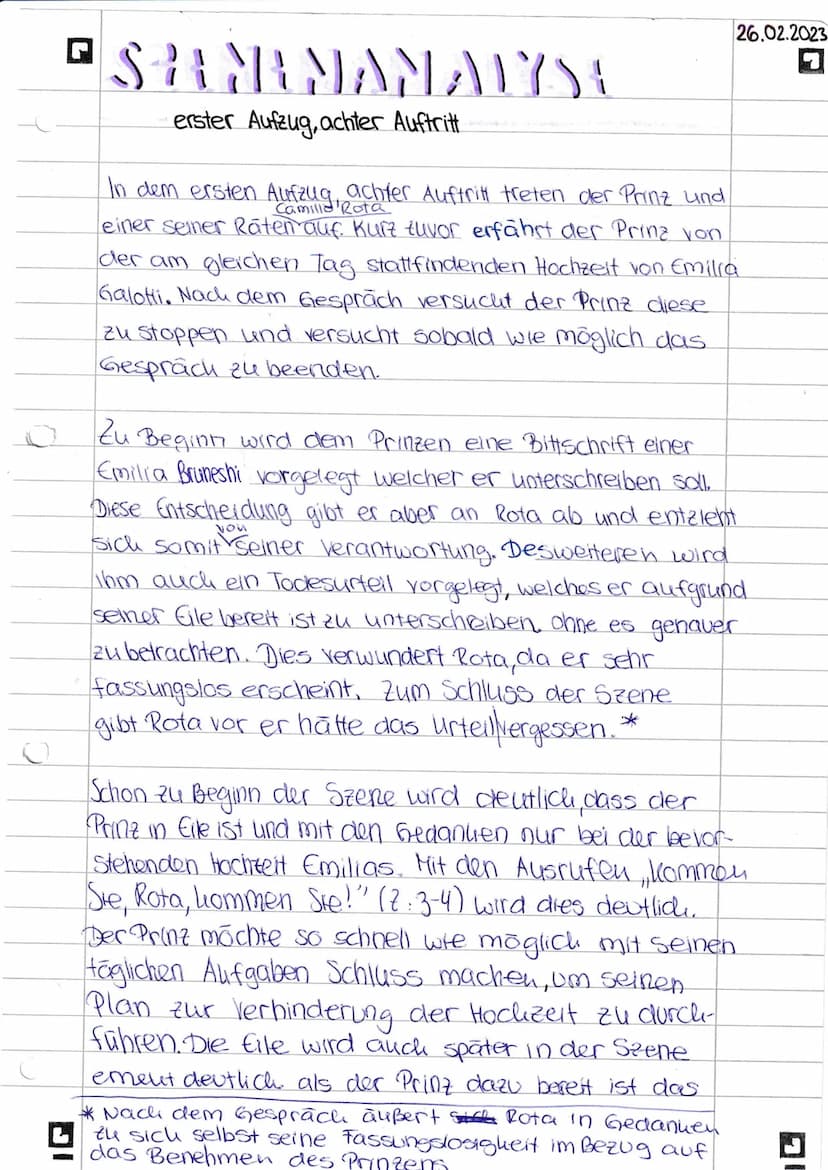 26.02.2023
SZENENANALYSE
erster Aufzug, achter Auftritt
In dem ersten Aufzug, achter Auftritt treten der Prinz und
Camillo Rota
einer seiner Räten auf. Kurz zuvor erfährt der Prinz von
der am gleichen Tag stattfindenden Hochzeit von Emilia
Galotti. Nach dem Gespräch versucht der Prinz diese
zu stoppen und versucht sobald wie möglich das
Gespräch zu beenden.
Zu Beginn wird dem Prinzen eine Bittschrift einer
Emilia Bruneshi vorgelegt welcher er unterschreiben soll.
Diese Entscheidung gibt er aber an Rota ab und entzieht
sich somit von seiner Verantwortung. Desweiteren wird
ihm auch ein Todesurteil vorgelegt, welches er aufgrund
seiner Eile bereit ist zu unterscheiben ohne es genauer
zu betrachten. Dies verwundert Rota, da er sehr
fassungslos erscheint. Zum Schluss der Szene
gibt Rota vor er hätte das Urteil vergessen.*
Schon zu Beginn der Szene wird deutlich, dass der
Prinz in Eile ist und mit den Gedanken nur bei der bevor-
stehenden Hochzeit Emilias. Mit den Ausrufen „kommen
Sie, Rota, kommen Sie!" (Z. 3-4) wird dies deutlich.
Der Prinz möchte so schnell wie möglich mit seinen
täglichen Aufgaben Schluss machen, um seinen
Plan zur Verhinderung der Hochzeit zu durch-
führen. Die Eile wird auch später in der Szene
erneut deutlich als der Prinz dazu bereit ist das
* Nach dem Gespräch äußert sich Rota in Gedanken
zu sich selbst seine Fassungslosigkeit im Bezug auf
das Benehmen des Prinzens